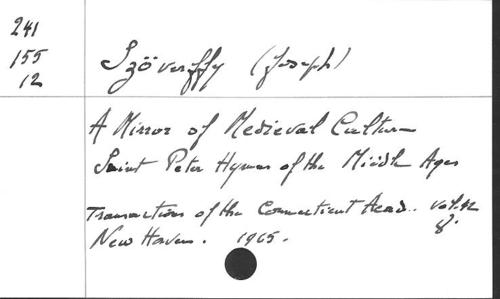 241
155
12
Szövérffy (Joseph)
A Mirror of Medieval Culture
Saint Peter Hymns of the Middle Ages
Transactions of the Connecticut Acad.. vol. 42
8°.
New Haven. 1965.